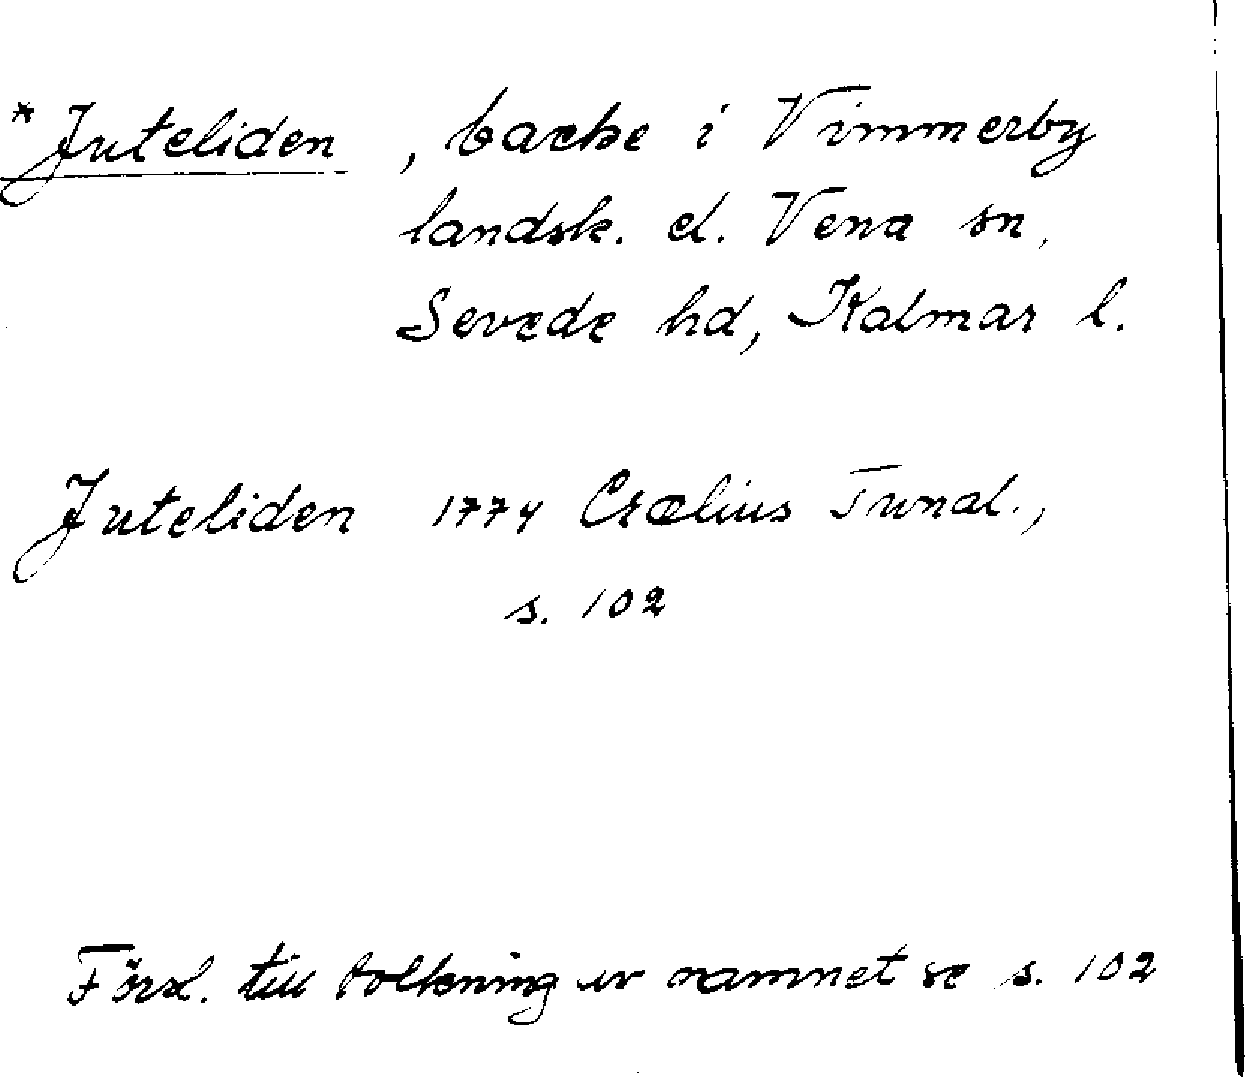 *Juteliden, backe i Vimmerby
landsk. el. Vena sn,
Sevede hd, Kalmar l.
Juteliden 1774 Crælius Tunal.,
s. 102
Försl. till tolkning av namnet se s. 102